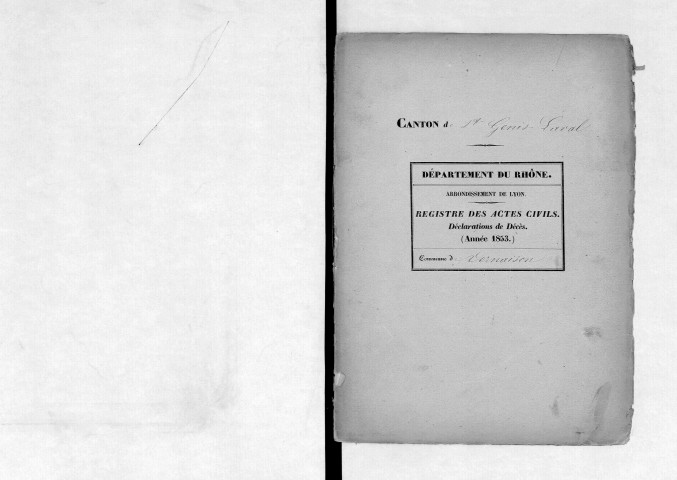 CANTON d St Genis-Laval
DÉPARTEMENT DU RHÔNE.
ARRONDISSEMENT DE LYON.
REGISTRE DES ACTES CIVILS.
Déclarations de Décès.
(Année 1853.)
Commune d Vernaison